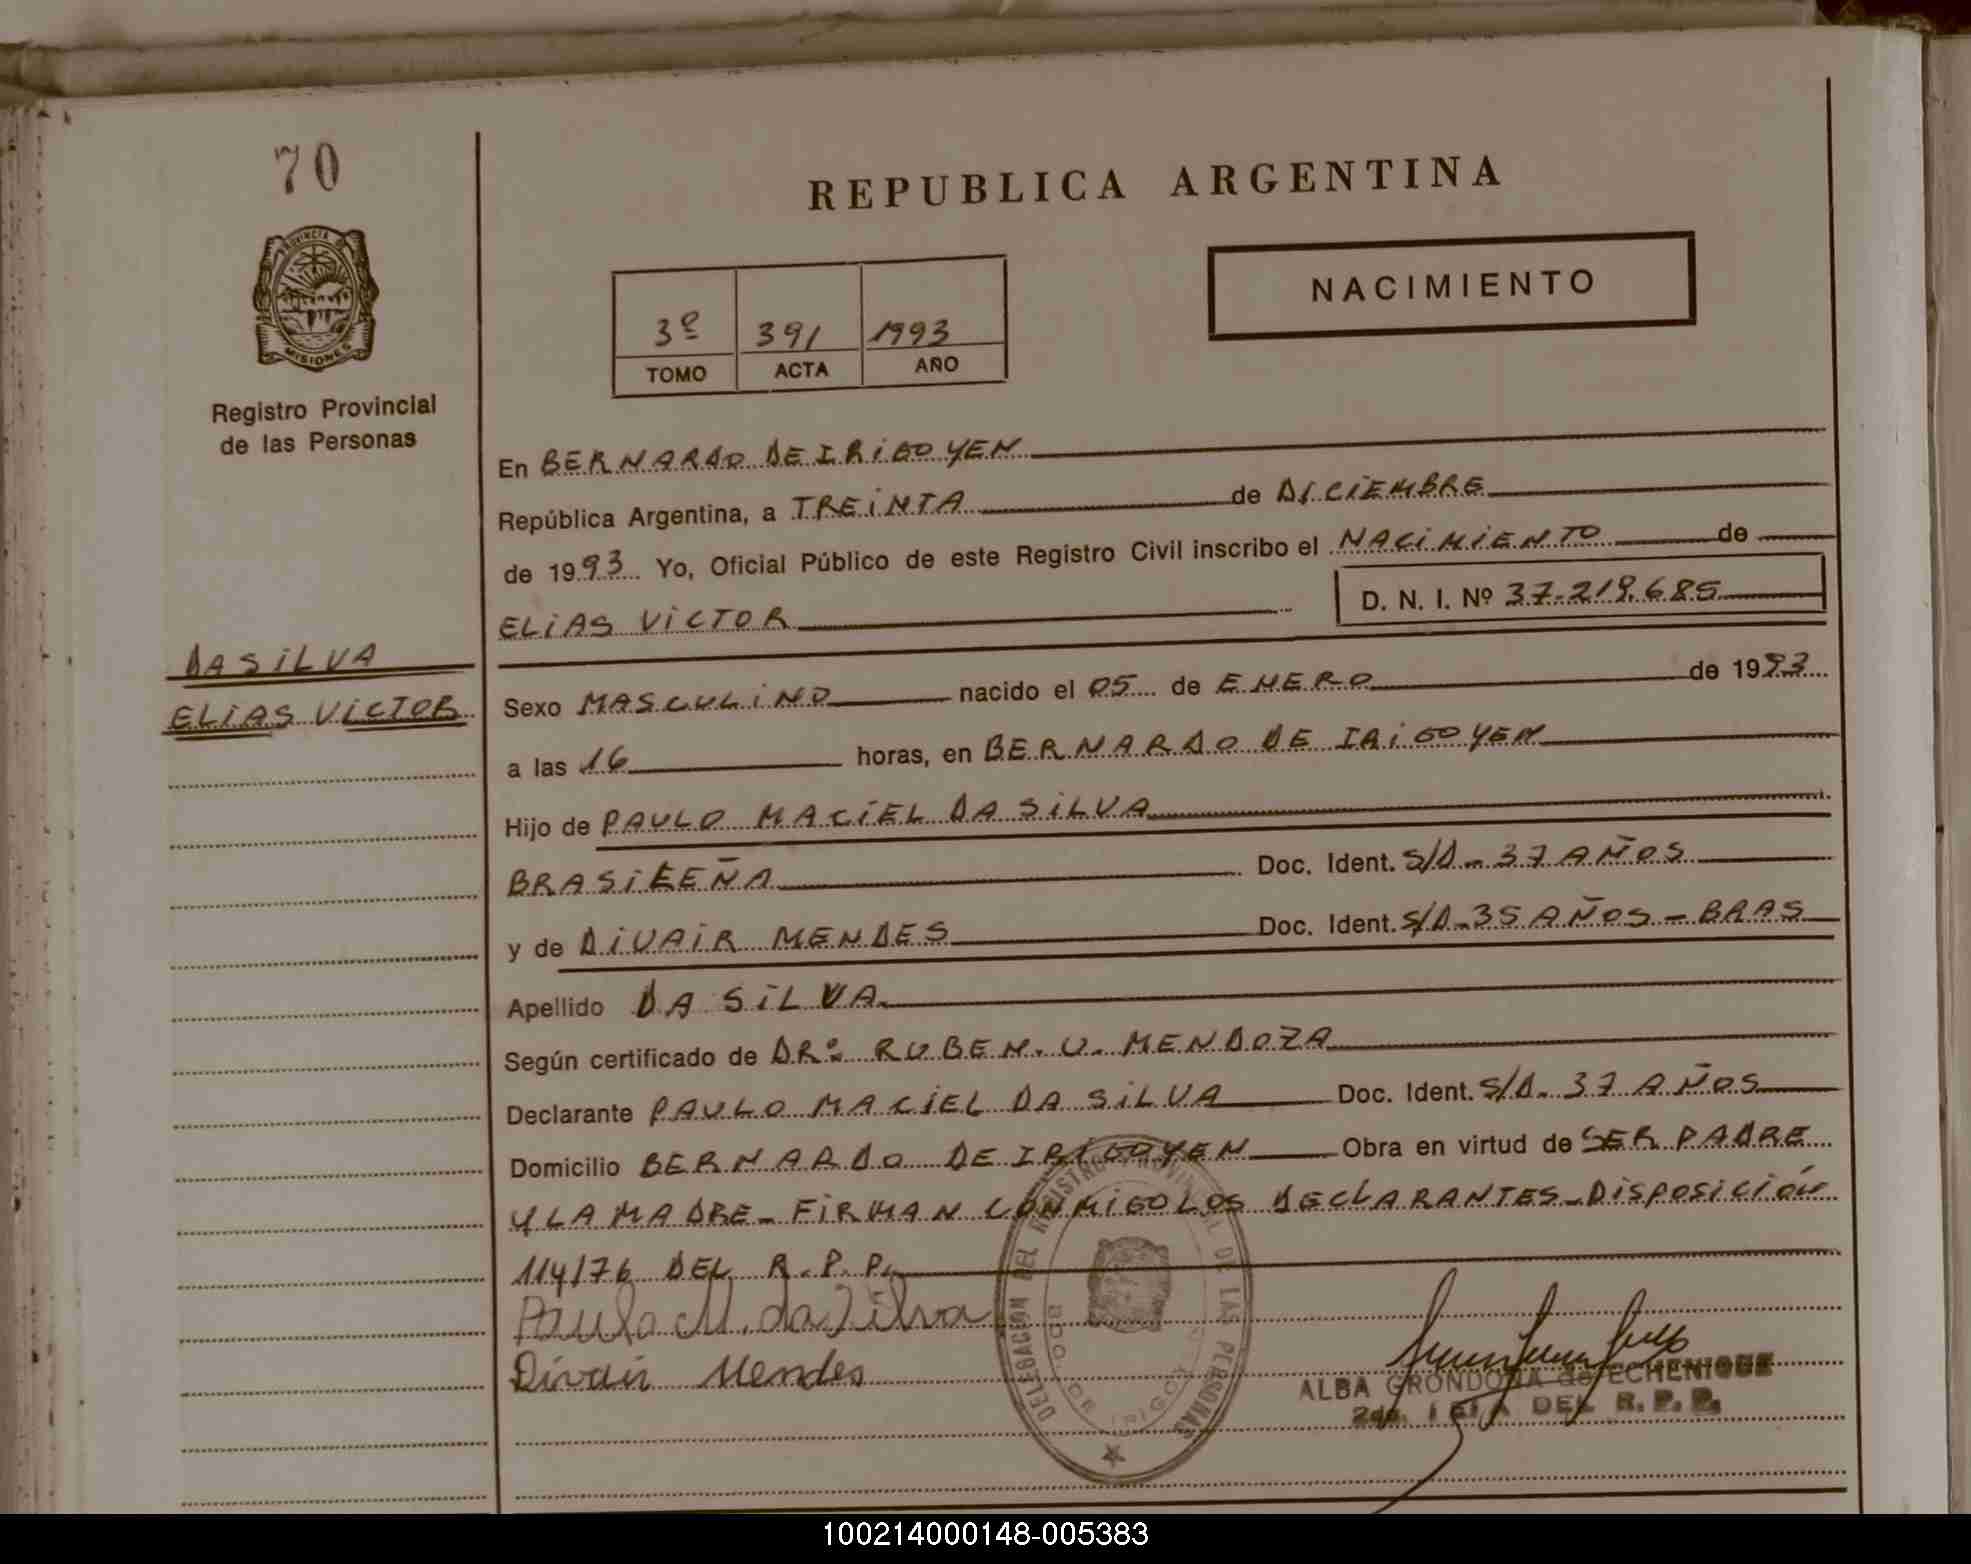 70
REPUBLICA ARGENTINA
PROVINCIA DE
MISIONES
Registro Provincial
de las Personas
NACIMIENTO
3º 391 1993
TOMO ACTA AÑO
En BERNARDO DE IRIGOYEN
República Argentina, a TREINTA de DICIEMBRE
de 1993 Yo, Oficial Público de este Registro Civil inscribo el NACIMIENTO de
ELIAS VICTOR D. N. I. Nº 37.219.685
DA SILVA
ELIAS VICTOR
Sexo MASCULINO nacido el 05 de ENERO de 1993
a las 16 horas, en BERNARDO DE IRIGOYEN
Hijo de PAULO MACIEL DA SILVA
BRASILEÑA Doc. Ident. S/D - 37 AÑOS
y de DIVAIR MENDES Doc. Ident. S/D - 35 AÑOS - BRAS
Apellido DA SILVA
Según certificado de DRº RUBEN. U. MENDOZA
Declarante PAULO MACIEL DA SILVA Doc. Ident. S/D - 37 AÑOS
Domicilio BERNARDO DE IRIGOYEN Obra en virtud de SER PADRE
Y LA MADRE - FIRMAN CONMIGO LOS DECLARANTES - DISPOSICIÓN
114/76 DEL R.P.P.
Paulo M. da Silva
Divair Mendes
DELEGACION DEL REGISTRO PROVINCIAL DE LAS PERSONAS
BDO. DE IRIGOYEN
ALBA GRONDONA de ECHENIQUE
2da. JEFA DEL R.P.P.
100214000148-005383